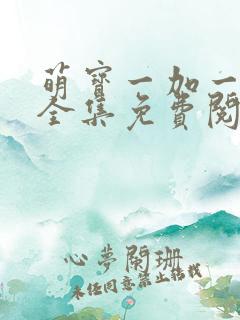 萌寳一加一
全集免費閱
心夢闌珊
未经同意禁止转载